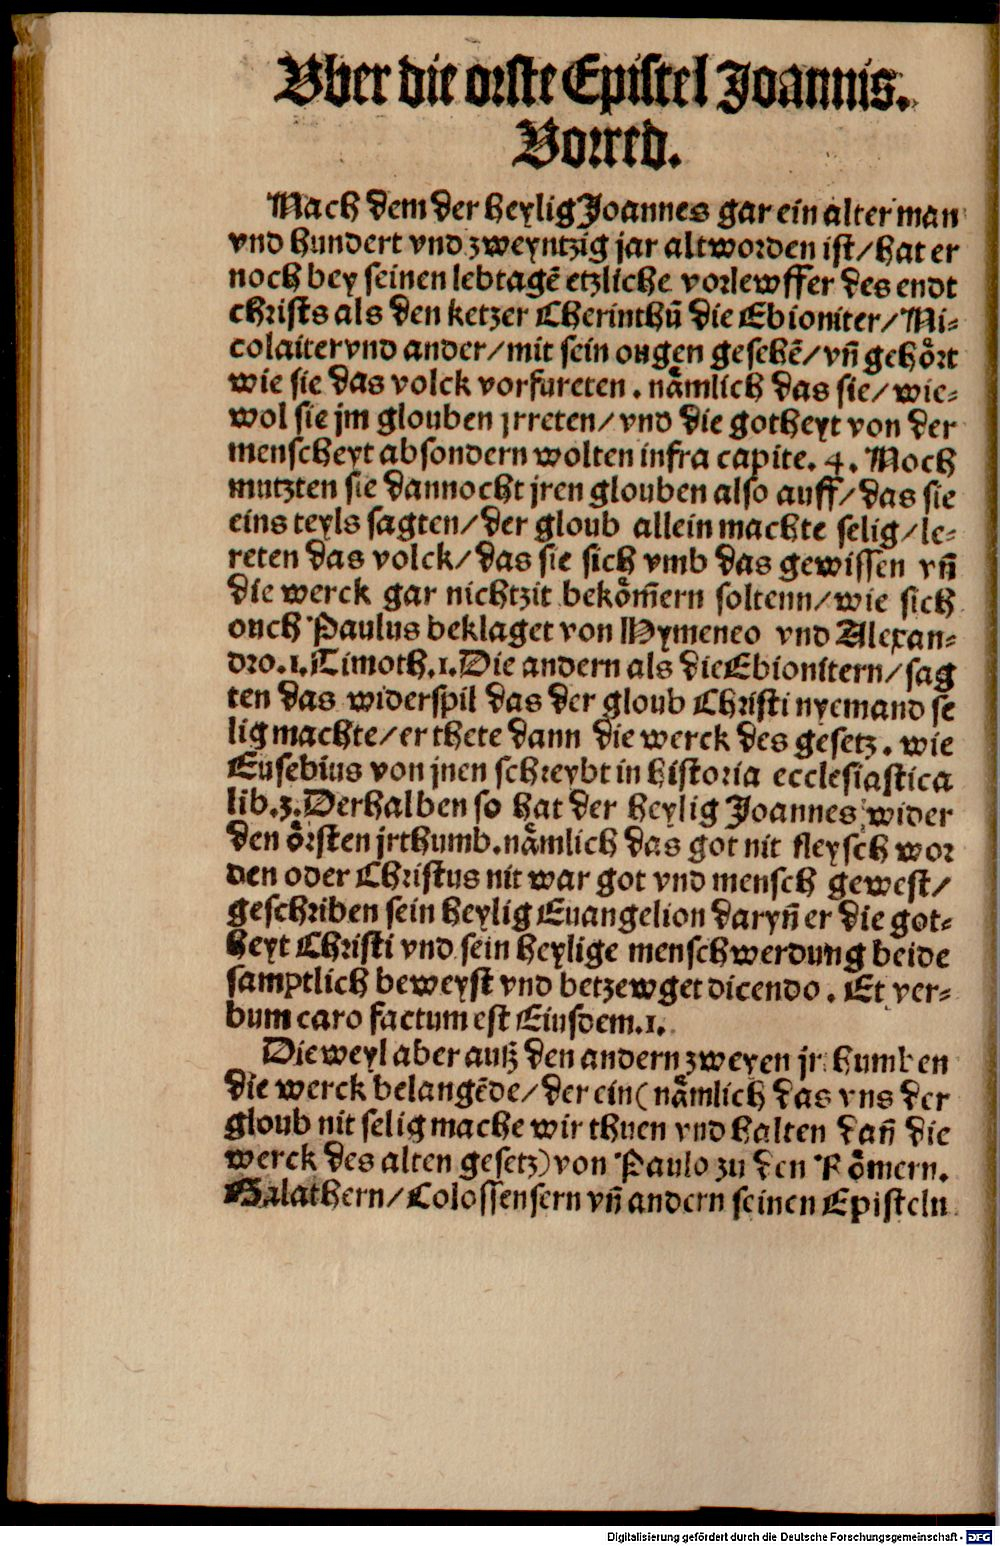 Vber die orste Epistel Joannis.
Vorred.
Nach dem der heylig Joannes gar ein alter man
vnd hundert vnd zweyntzig jar alt worden ist/ hat er
noch bey seinen lebtagẽ etzliche vorlewffer des endt
christs als den ketzer Cherinthũ die Ebioniter/ Ni-
colaiter vnd ander/ mit sein ougen gesehẽ/ vñ gehört
wie sie das volck vorfureten. nämlich das sie/ wie-
wol sie jm glouben jrreten/ vnd die gotheyt von der
menscheyt absondern wolten infra capite. 4. Noch
mutzten sie dannocht jren glouben also auff/ das sie
eins teyls sagten/ der gloub allein machte selig/ le-
reten das volck/ das sie sich vmb das gewissen vñ
die werck gar nichtzit beköm̃ern soltenn/ wie sich
ouch Paulus beklaget von Hymeneo vnd Alexan-
dro. 1. Timoth. 1. Die andern als die Ebionitern/ sag
ten das widerspil das der gloub Christi nyemand se
lig machte/ er thete dann die werck des gesetz. wie
Eusebius von jnen schreybt in historia ecclesiastica
lib. 3. Derhalben so hat der heylig Joannes wider
den örsten jrthumb. nämlich das got nit fleysch wor
den oder Christus nit war got vnd mensch gewest/
geschriben sein heylig Euangelion daryñ er die got-
heyt Christi vnd sein heylige menschwerdung beide
samptlich beweyst vnd betzewget dicendo. Et ver-
bum caro factum est Eiusdem. 1.
Die weyl aber auß den andern zweyen jrthumben
die werck belangẽde/ der ein (nämlich das vns der
gloub nit selig mache wir thuen vnd halten dañ die
werck des alten gesetz) von Paulo zu den Römern.
Galathern/ Colossensern vñ andern seinen Episteln
Digitalisierung gefördert durch die Deutsche Forschungsgemeinschaft - DFG